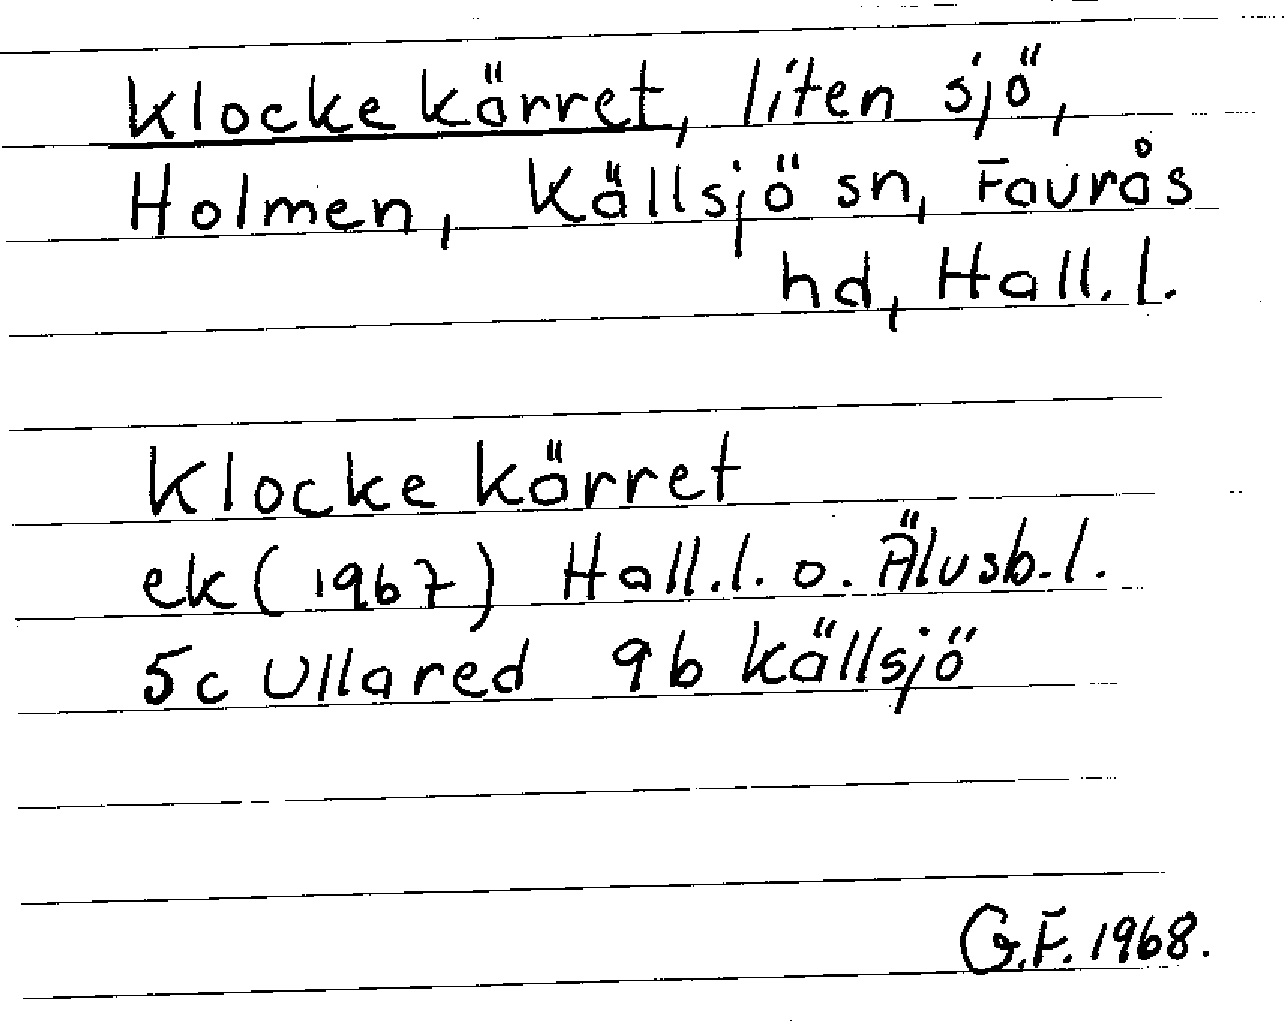 Klockekärret, liten sjö,
Holmen, Källsjö sn, Faurås
hd, Hall. l.
Klockekärret
ek (1967) Hall.l. o. Älvsb.l.
5c Ullared 9b Källsjö
G.F. 1968.